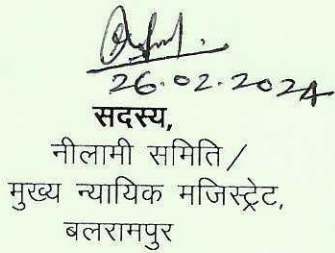 26.02.2024
सदस्य,
नीलामी समिति/
मुख्य न्यायिक मजिस्ट्रेट,
बलरामपुर